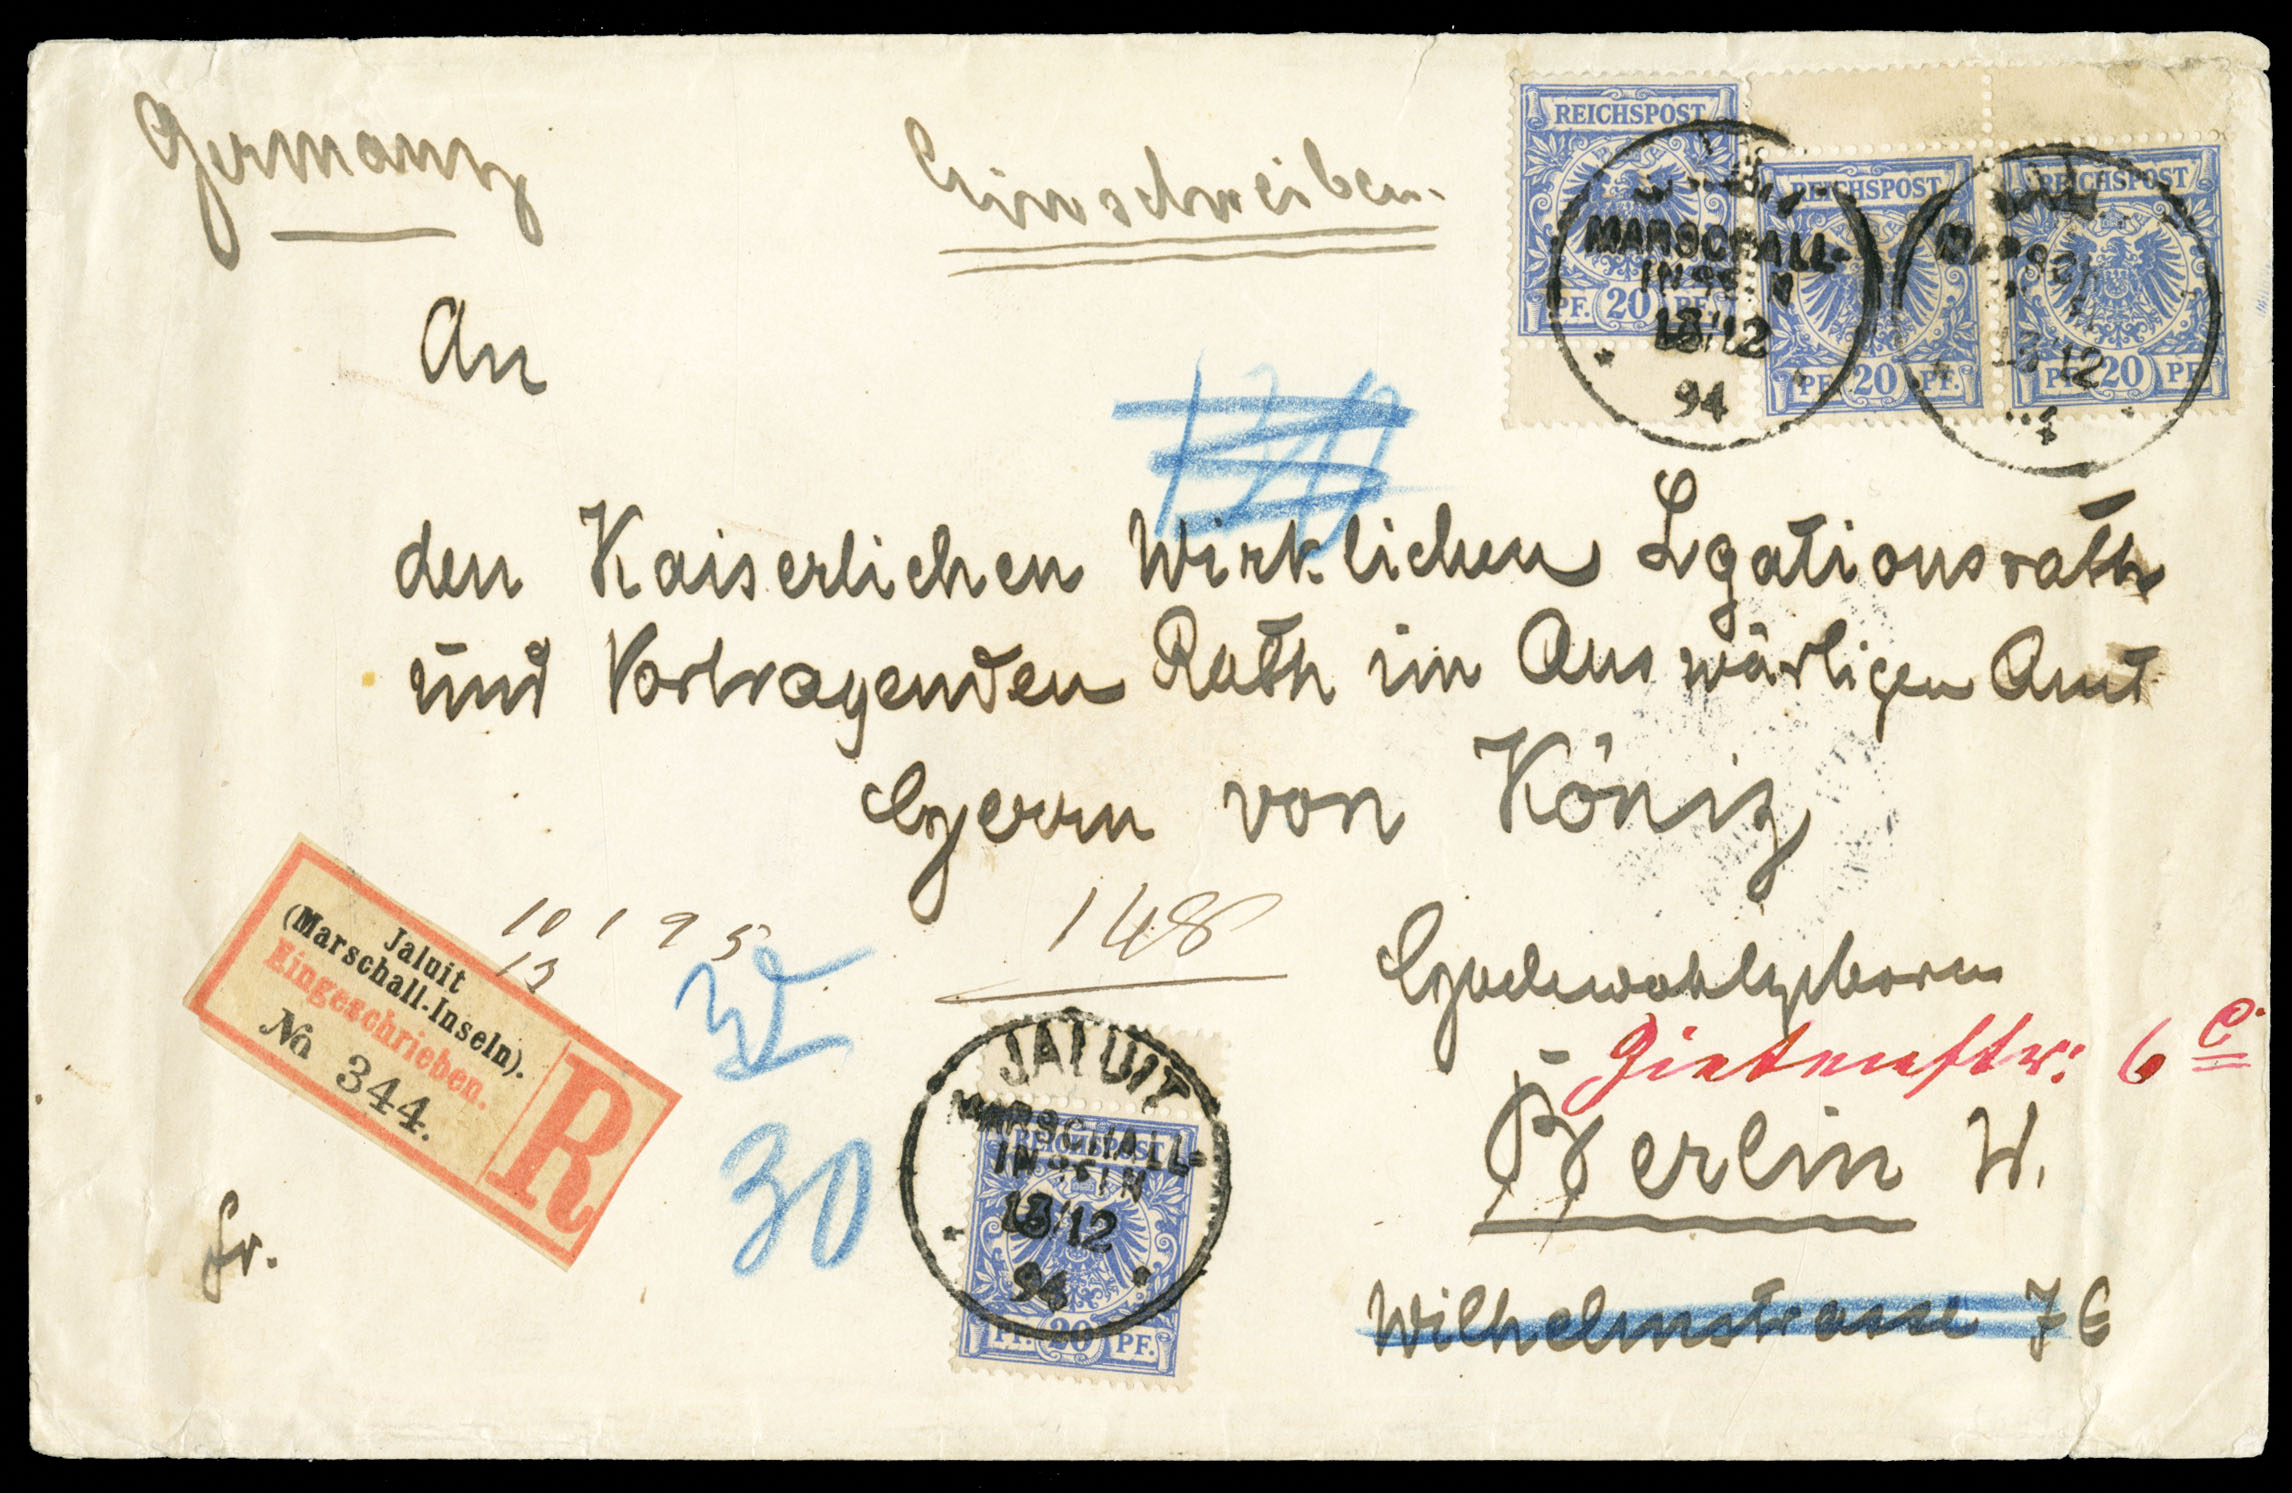 Germany
Einschreiben.
REICHSPOST
PF. 20 PF.
REICHSPOST
PF. 20 PF.
REICHSPOST
PF. 20 PF.
MARSCHALL-
INSELN
13/12
94
MARSCH
13/12
An
den Kaiserlichen Wirklichen Lgationsrath
und Vortragenden Rath im Auswärtigen Amt
Herrn von König
Hochwohlgeboren
Zietenstr: 6 c.
Berlin W.
Wilhelmstrasse 76
10195
13
148
Jaluit
(Marschall-Inseln).
Eingeschrieben.
No 344.
R
30
fr.
JALUIT
MARSCHALL-
INSELN
13/12
94
REICHSPOST
PF. 20 PF.